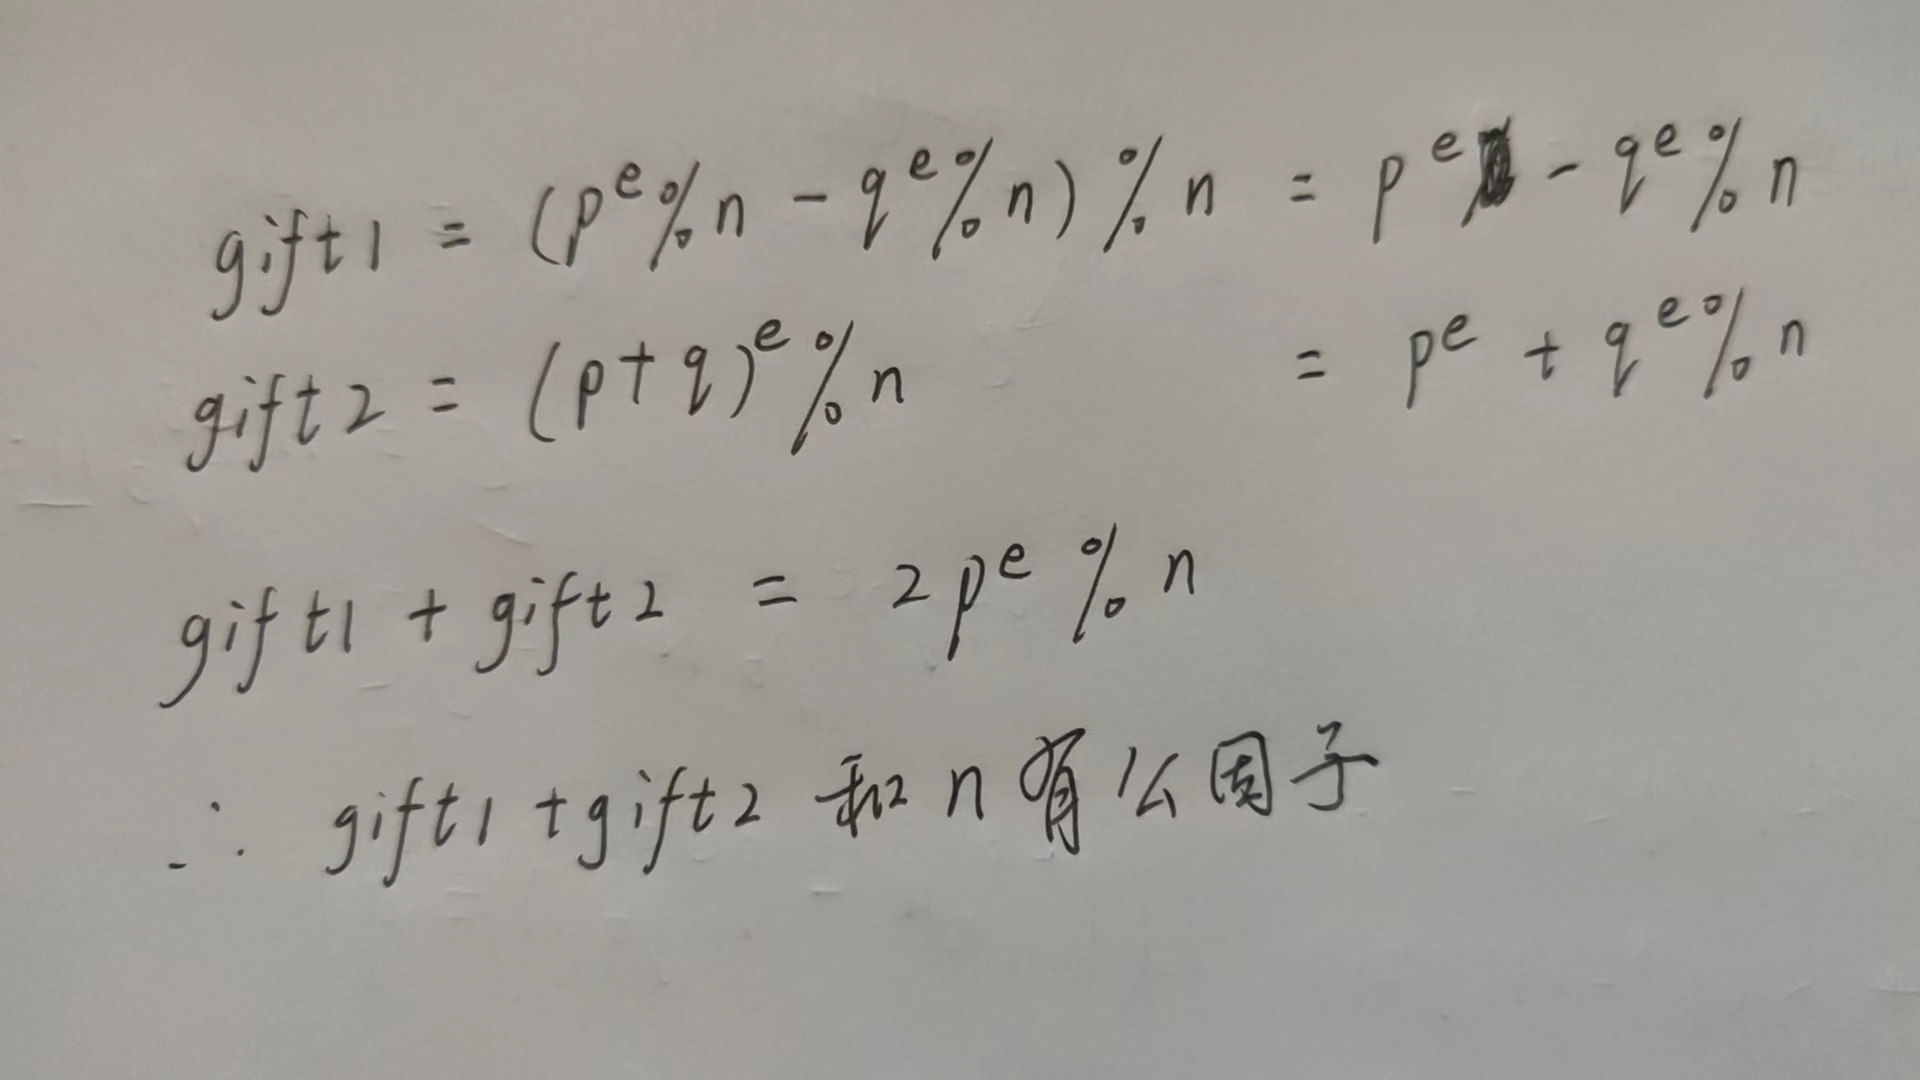 gift1 = (p^e%n - q^e%n) % n = p^e - q^e%n
gift2 = (p+q)^e%n = p^e + q^e%n
gift1 + gift2 = 2p^e % n
∴ gift1 + gift2 和 n 有公因子